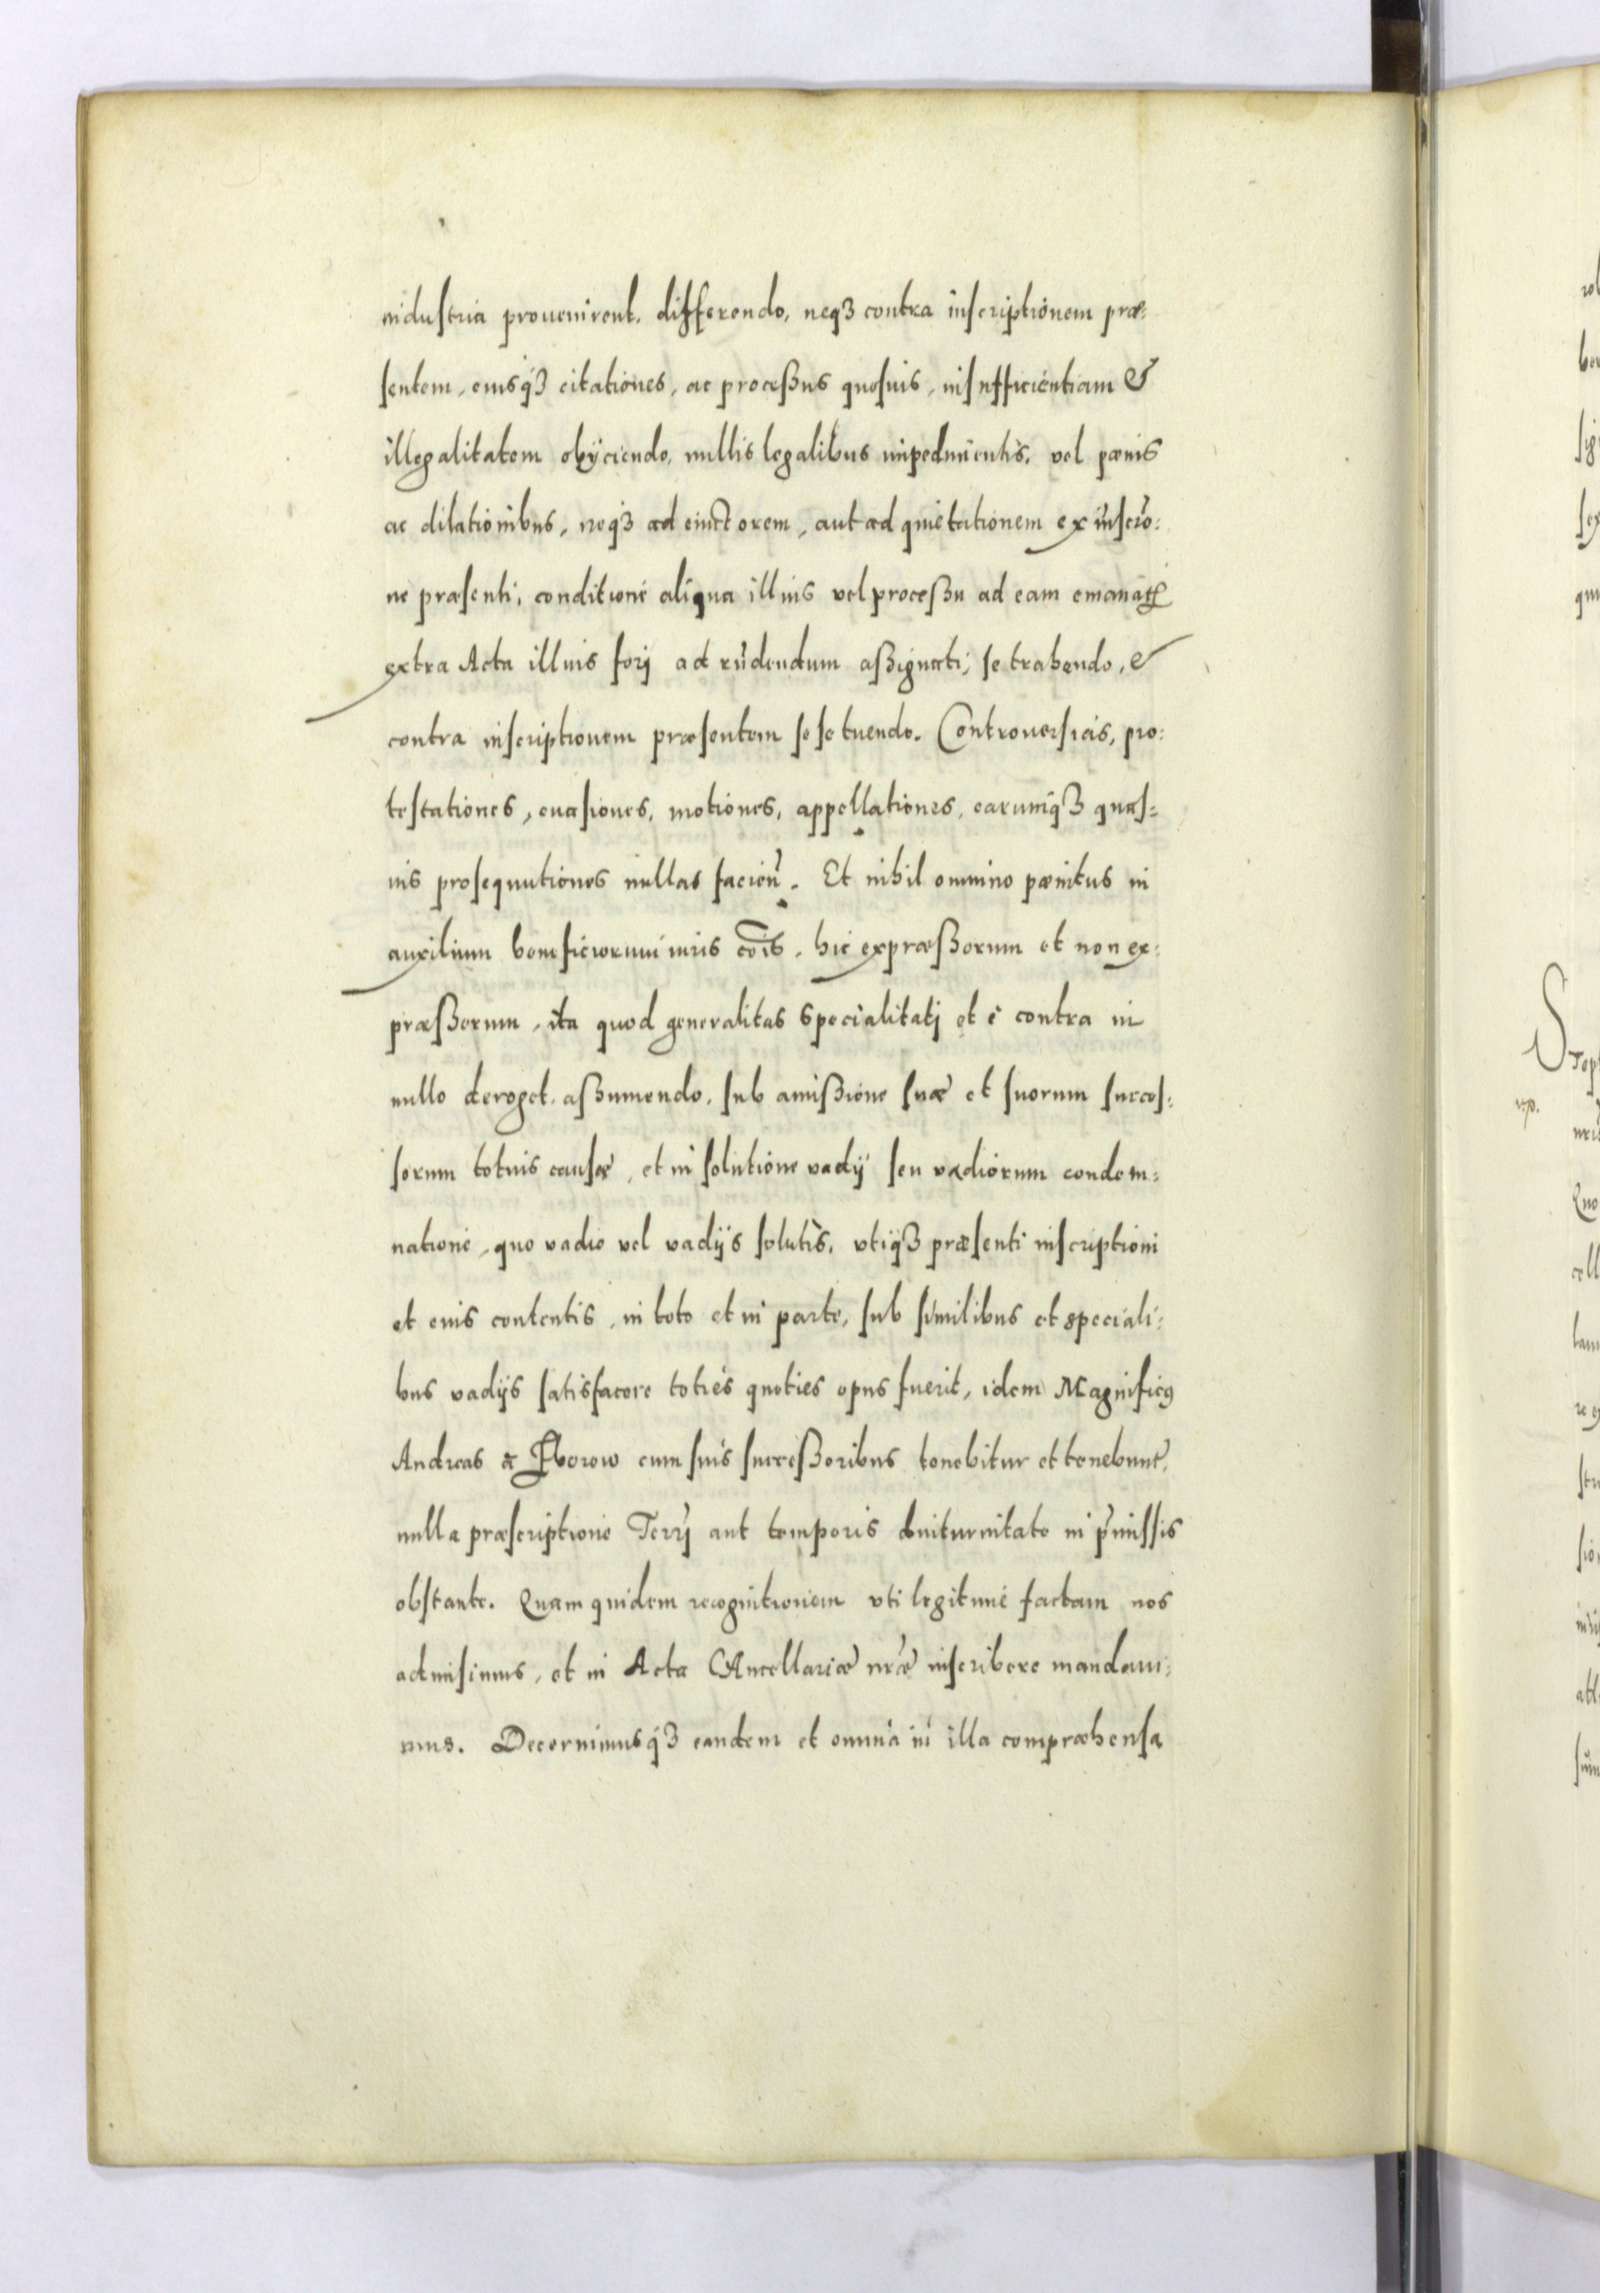 industria prouenirent, differendo, neqꝫ contra inscriptionem præ:
sentem, eiusq́ꝫ citationes, ac proceßus quosuis, insufficientiam &
illegalitatem obÿciendo, nullis legalibus impedimentis, vel pœnis
ac dilationibus, neqꝫ ad euictorem, aut ad quietationem ex inscrõ:
ne præsenti, conditione aliqua illius vel proceßu ad eam
extra Acta illuis forj ad rñdendum aßignati, se trahendo, &
contra inscriptionem præsentem se se tuendo. Controuersias, pro:
testationes, euasiones, motiones, appellationes, earumq́ꝫ quas=
uis prosequutiones nullas facien̄. Et nihil omnino pœnitus in
auxilium beneficiorum iuris cõis, hic expræßorum et non ex:
præßorum, ita quod generalitas specialitatj et è contra in
nullo deroget, aßumendo, sub amißione suæ et suorum succes:
sorum totius causæ, et in solutione vadÿ seu vadiorum condem:
natione, quo vadio vel vadÿs solutis, vtiqꝫ præsenti inscriptioni
et eius contentis, in toto et in parte, sub similibus et speciali:
bus vadÿs satisfacere toties quoties opus fuerit, idem Magnificꝯ
Andreas à cum suis succeßoribus tenebitur et tenebunt̃,
nulla præscriptione Terrj aut temporis diuturnitate in p̃missis
obstante. Quam quidem recognitionem vti legitime factam nos
admisimus, et in Acta Cancellariæ nr̃æ inscribere mandaui:
mus. Decernimusq́ꝫ eandem et omnia in illa compræhensa